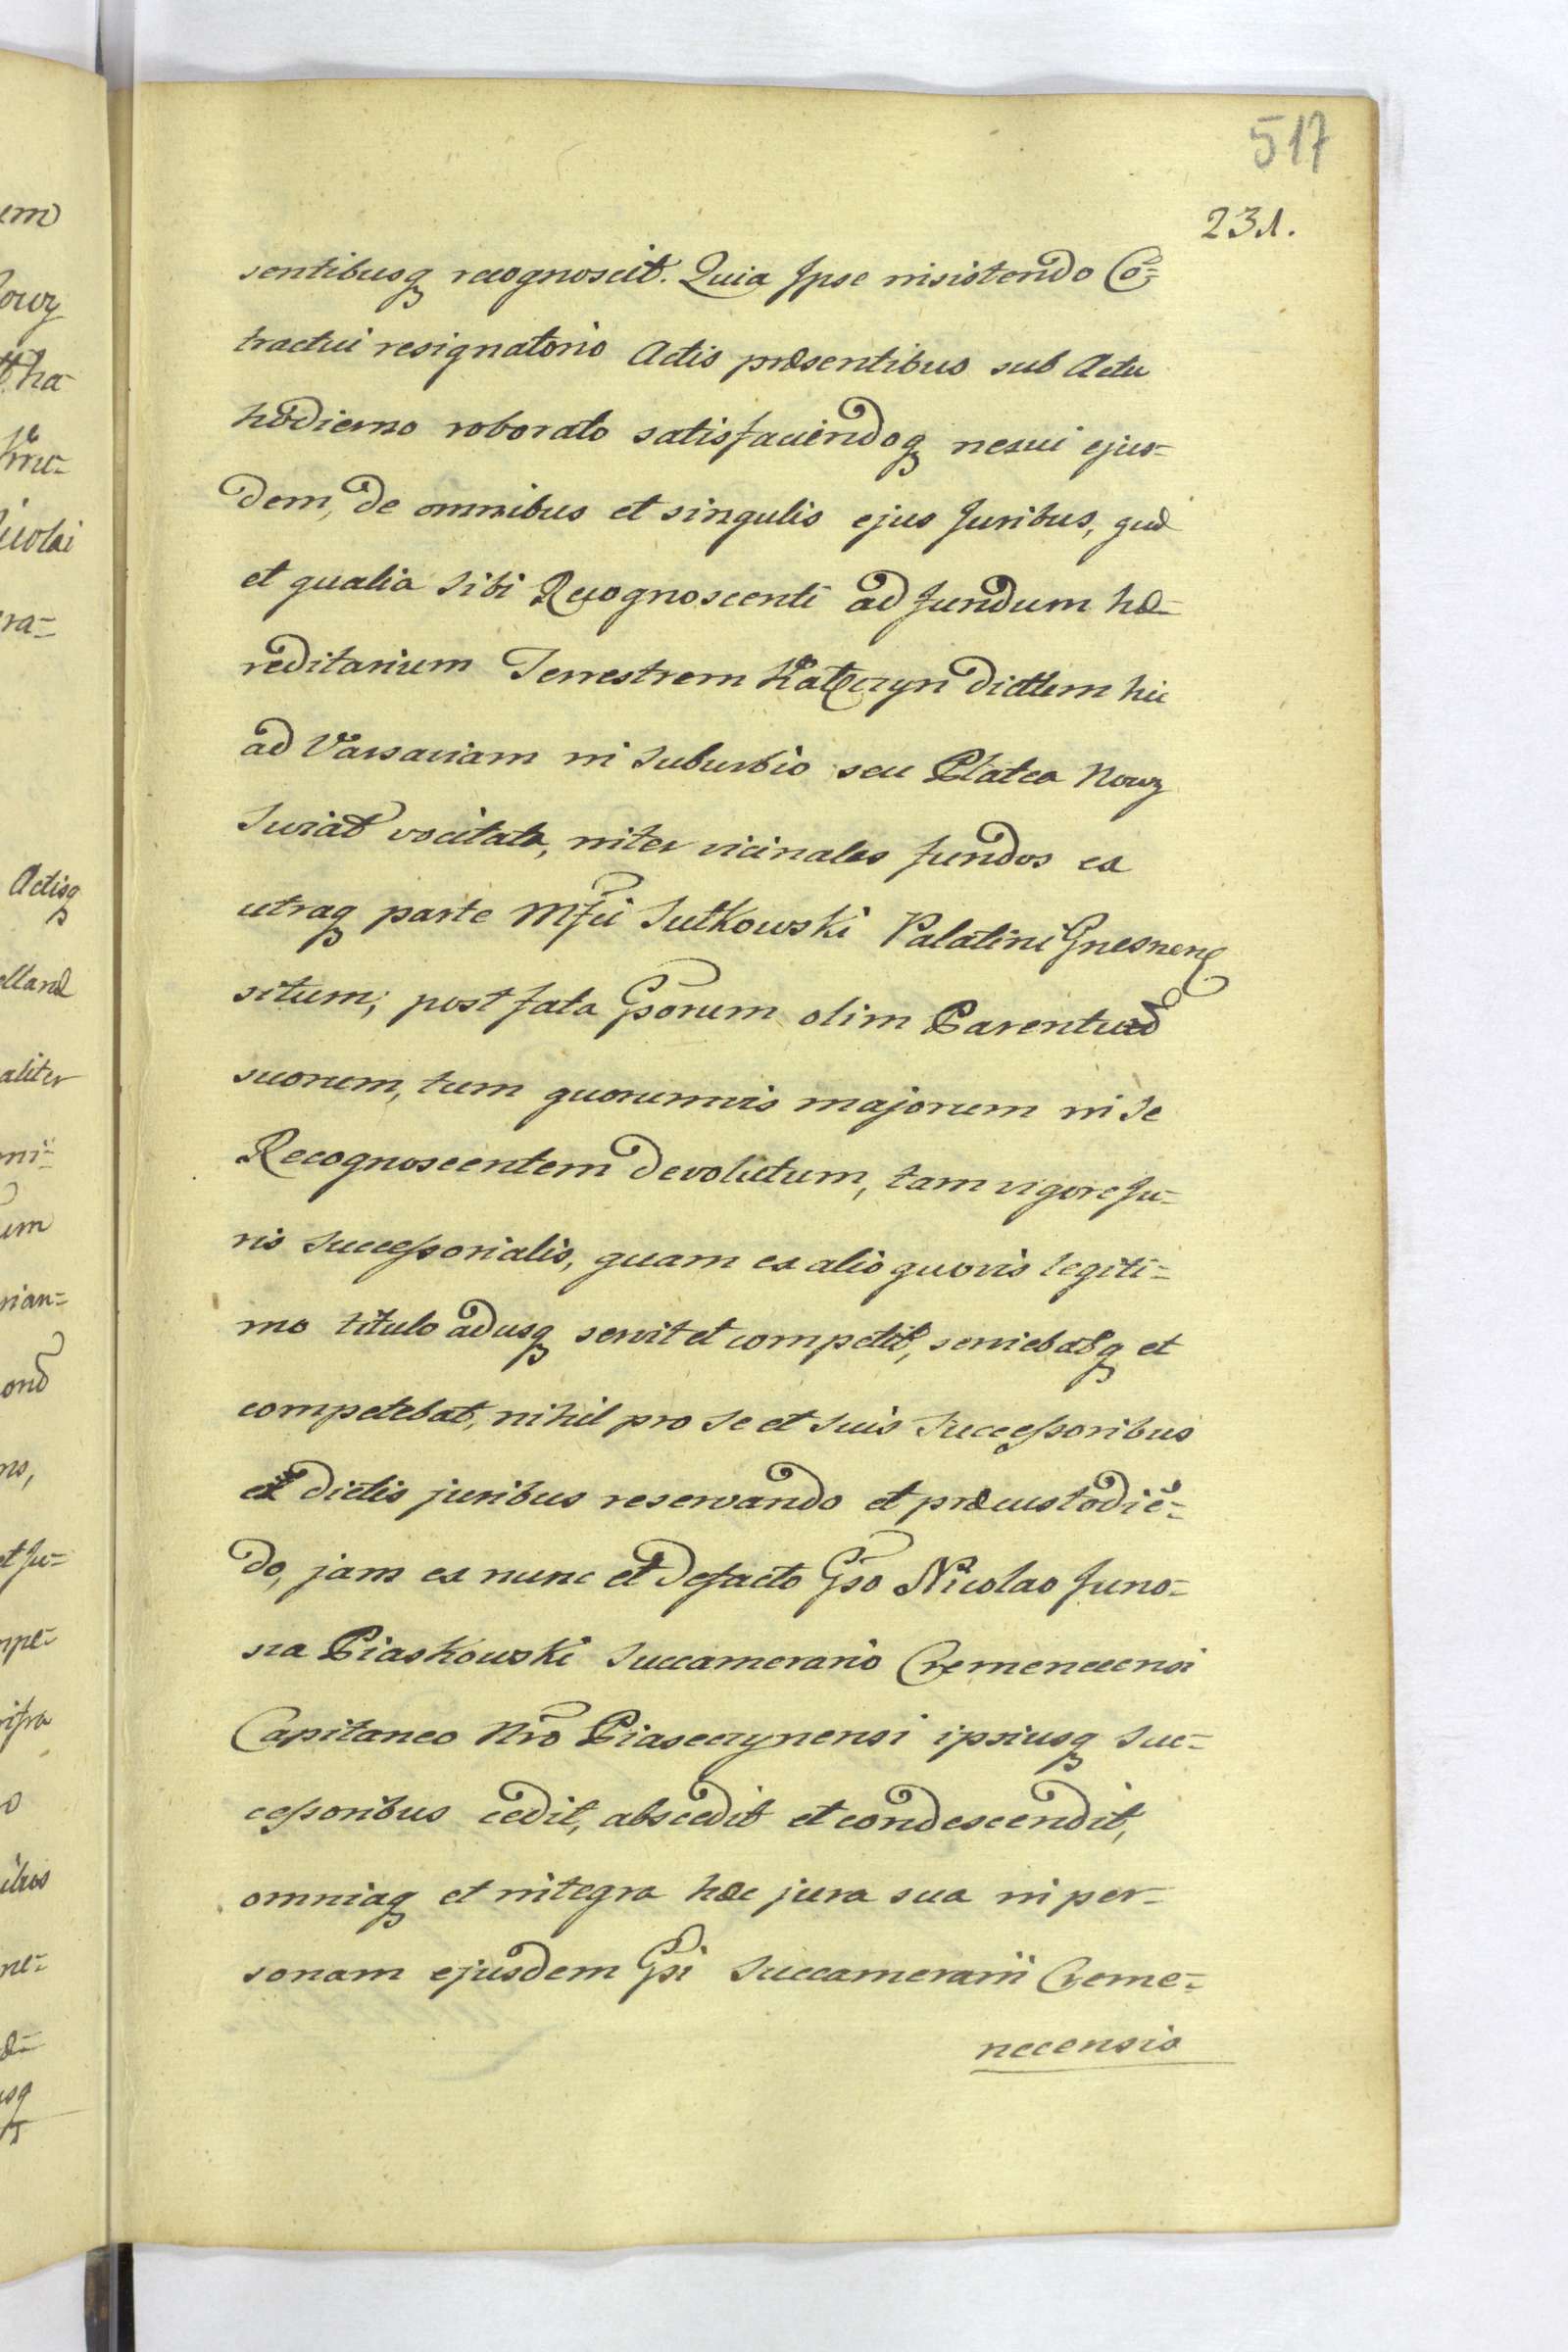 517
231.
sentibusq recognoscit. Quia Ipse insistendo Cō=
tractui resignatorio Actis præsentibus sub Actu
hodierno roborato satisfaciendoq nexui ejus=
dem, de omnibus et singulis ejus Juribus, quæ
et qualia sibi Recognoscenti ad fundum hæ=
reditarium Terrestrem Kałęczyn dictum hic
ad Varsaviam in suburbio seu Platea Nowy
Swiat vocitata, inter vicinales fundos ex
utraq parte Mfci Sułkowski Palatini Gnesnen
situm; post fata Gsorum olim Parentum
suorum, tum quorumvis majorum in se
Recognoscentem devolutum, tam vigore Ju=
ris successorialis, quam ex alio quovis legiti=
mo titulo adusq servit et competit, serviebatq et
competebat, nihil pro se et suis successoribus
ex dictis juribus reservando et præcustodiē=
do, jam ex nunc et defacto Gso Nicolao Juno=
sza Piaskowski Succamerario Cremenecensi
Capitaneo Nro Piaseczynensi ipsiusq suc=
cessoribus cedit, abscedit et condescendit,
omniaq et integra hæc jura sua in per=
sonam ejusdem Gsi Succamerarii Creme=
necensis